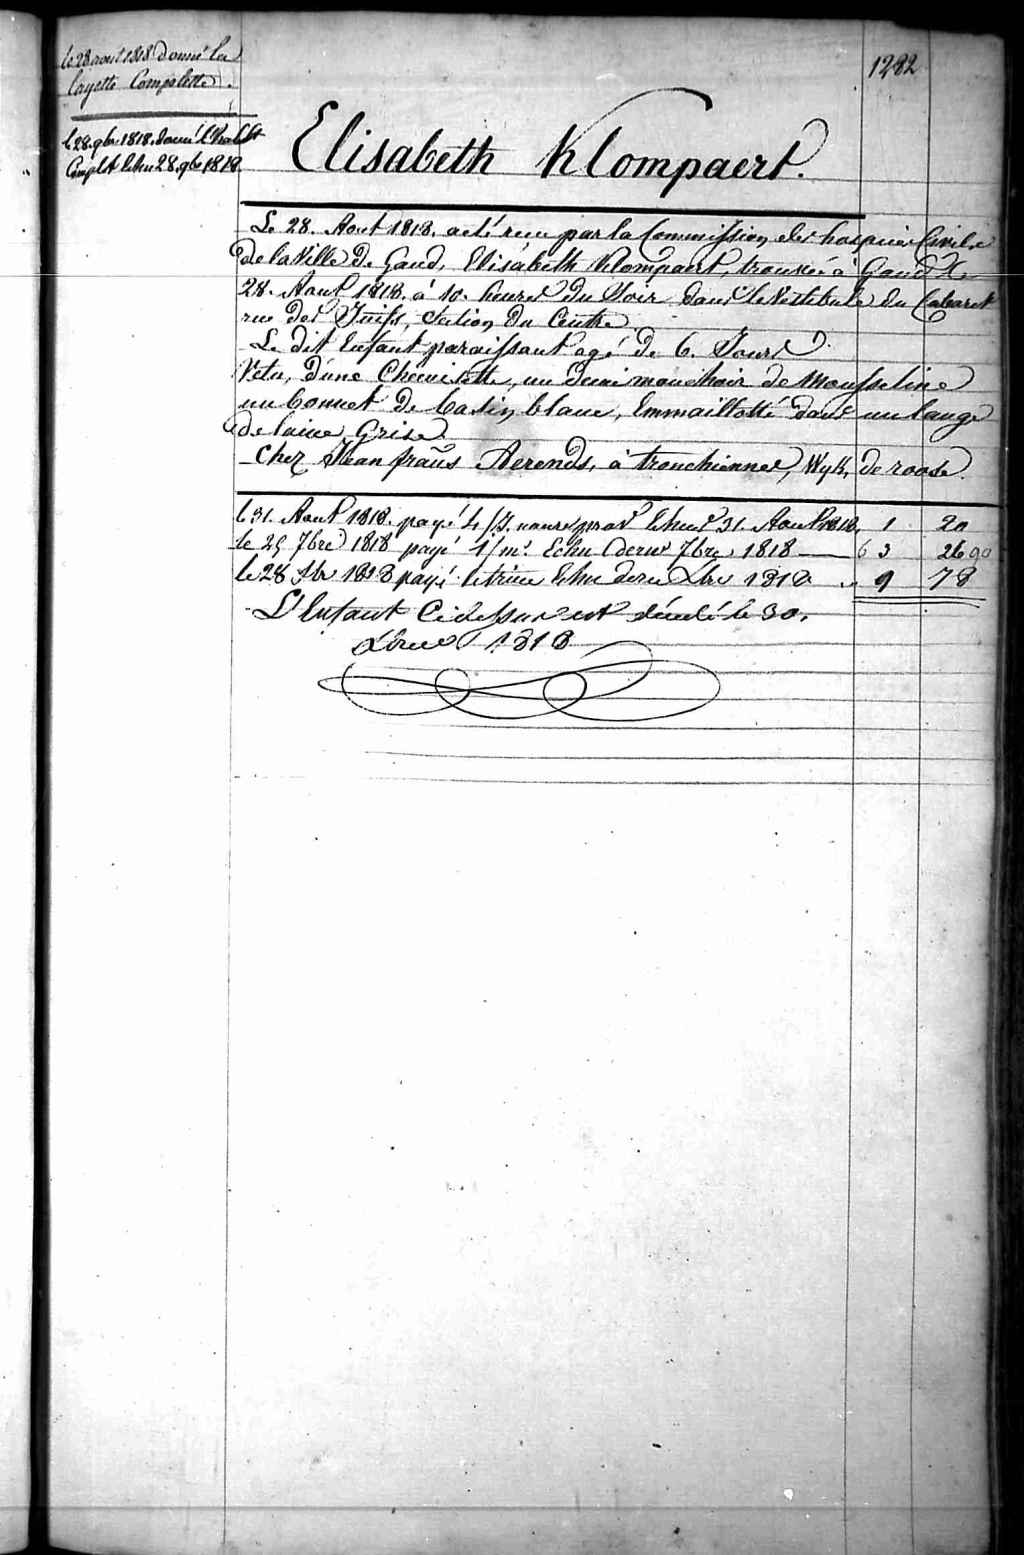 le 28 aout 1818 donné la
layette Complette.
le 28 9bre 1818 donné l'habilt
Complet Echu 28. 9bre 1818.
1282
Elisabeth Klompaert.
Le 28. Aout 1818. a été reçu par la Commission des hospices Civils
de la Ville de Gand, Elisabeth Klompaert, trouvée à Gand le
28. Aout 1818. à 10. heures du Soir dans le Vestibule du Cabaret
rue des Juifs, Section du Centre
Le dit Enfant paraissant agé de 6. Jours
Vetu, d'une Chemisette, un demi mouchoir de Mousseline
un bonnet de basin blanc, Emmaillotté dans un lange
de laine Grise
Chez Jean frans Aerends, à tronchiennes, Wyk, de roose.
le 31. Aout 1818. payé 4/J. Echus 31. Aout 1818. 1 20
le 25 7bre 1818 payé 1/ms. Echu dernr 7bre 1818 6 3 26 90
le 28 Xbre 1818 payé le trime Echu dern Xbre 1818 9 78
L'Enfant Cidessus est décédé le 30.
Xbre 1818